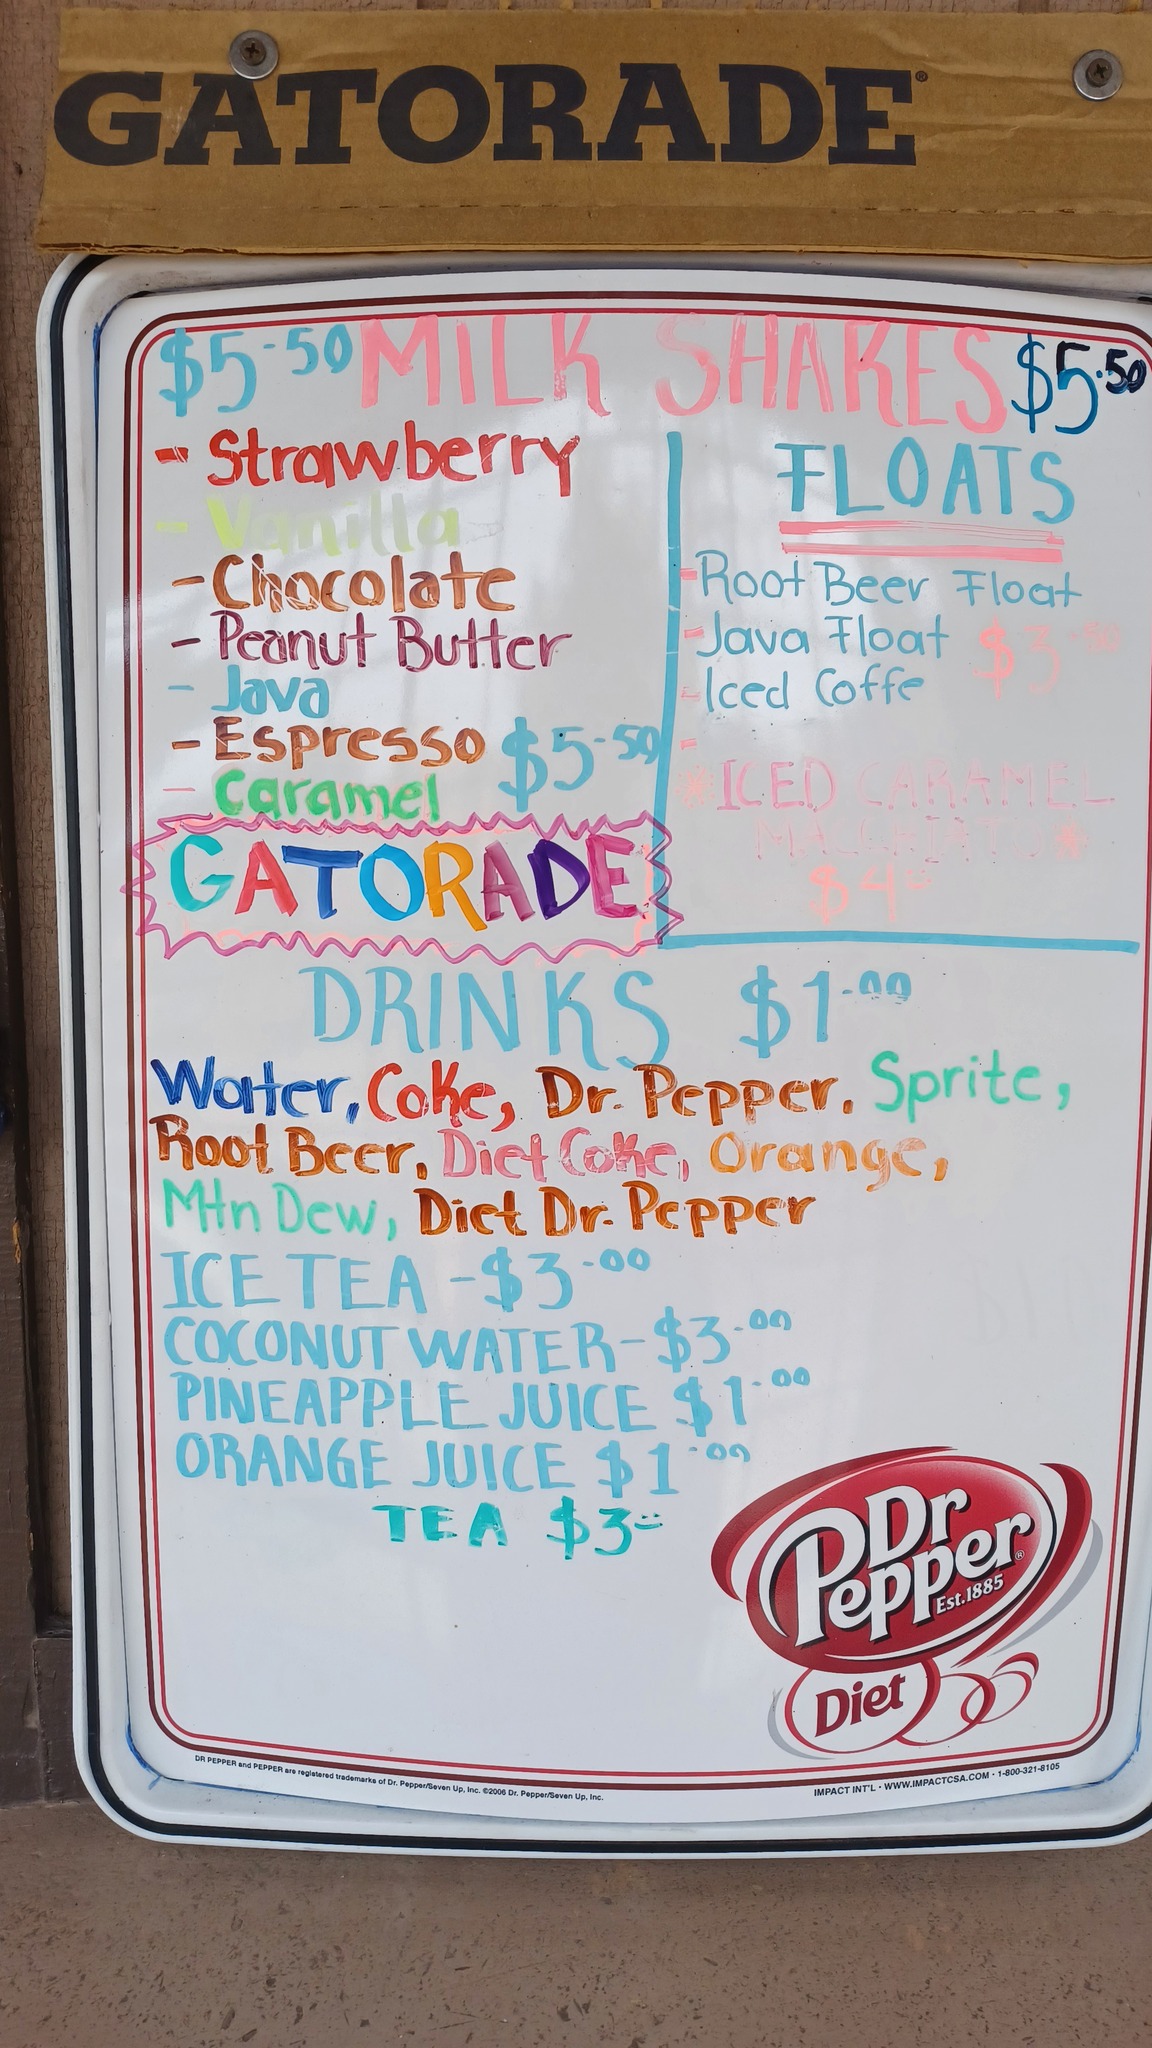 GATORADE®
$5.50 MILK SHAKES $5.50
- Strawberry
- Vanilla
- Chocolate
- Peanut Butter
- Java
- Espresso $5.50
- Caramel
FLOATS
- Root Beer Float
- Java Float $3.50
- Iced Coffe
-
*ICED CARAMEL
MACCHIATO*
$4=
GATORADE
DRINKS $1.00
Water, Coke, Dr. Pepper, Sprite,
Root Beer, Diet Coke, Orange,
Mtn Dew, Diet Dr. Pepper
ICE TEA - $3.00
COCONUT WATER - $3.00
PINEAPPLE JUICE $1.00
ORANGE JUICE $1.00
TEA $3=
Dr
Pepper®
Est.1885
Diet
DR PEPPER and PEPPER are registered trademarks of Dr. Pepper/Seven Up, Inc. ©2006 Dr. Pepper/Seven Up, Inc.
IMPACT INT'L • WWW.IMPACTCSA.COM • 1-800-321-8105